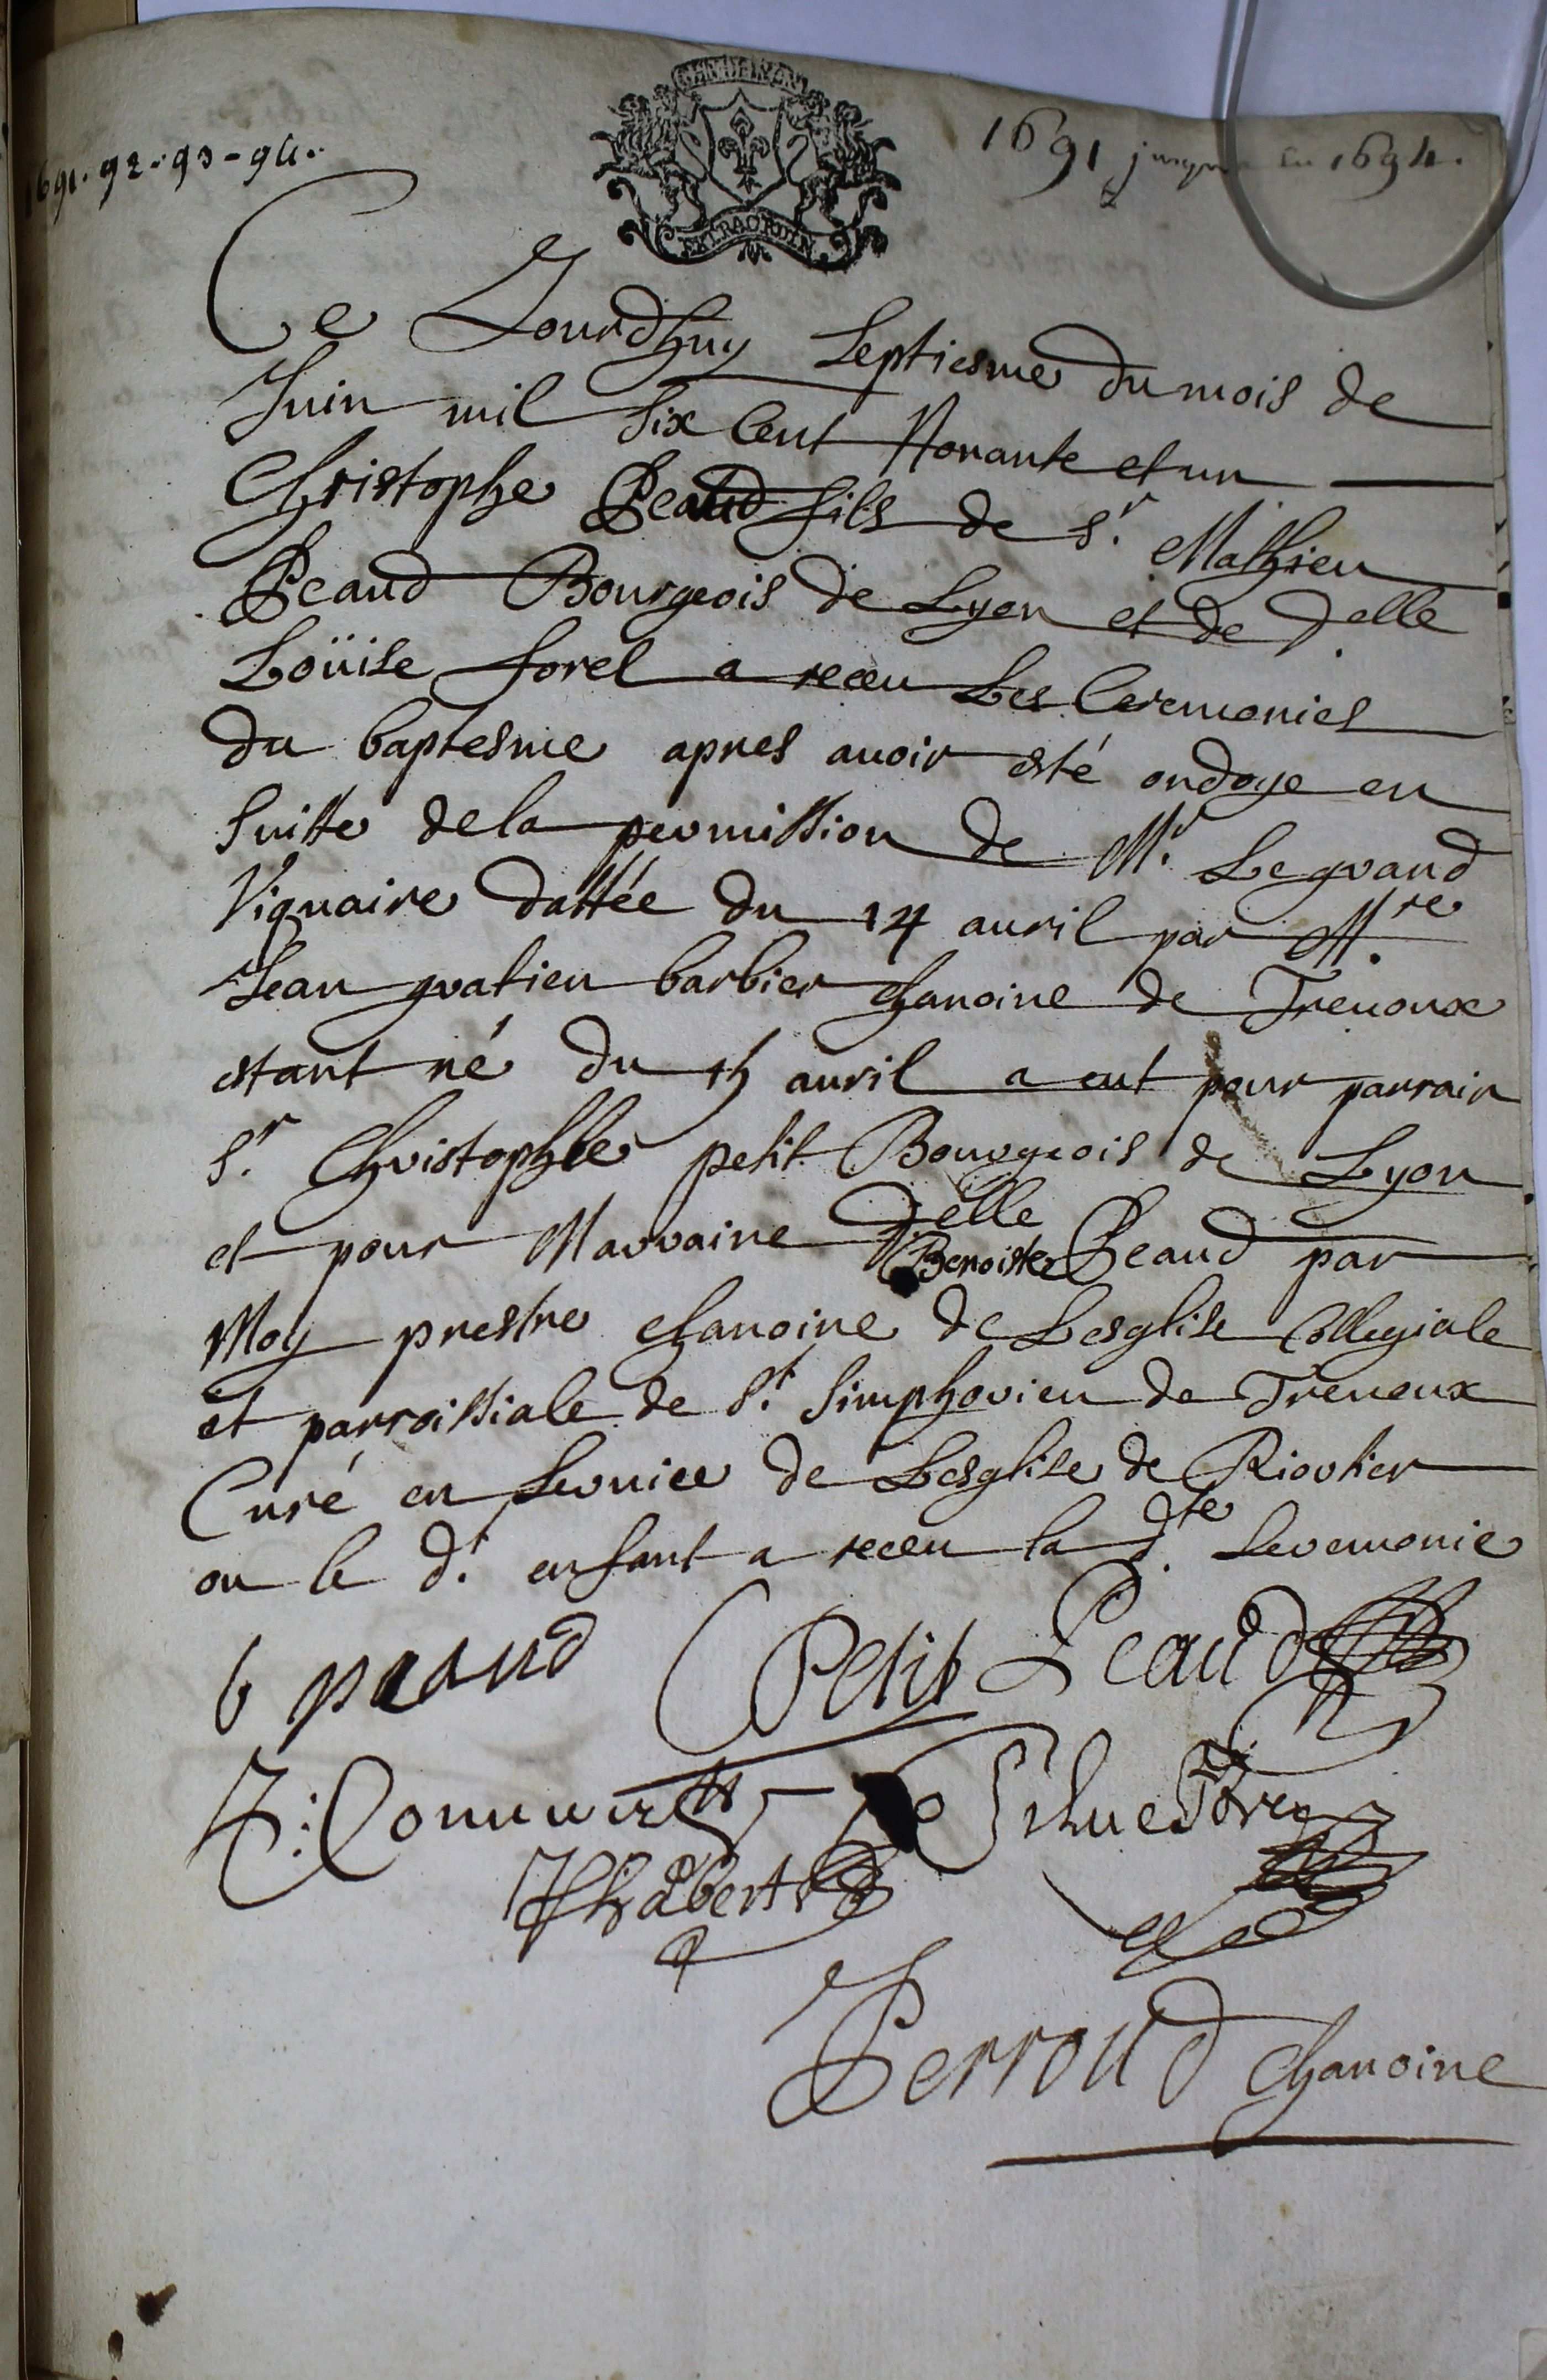 1691. 92. 93 - 94.
1691 jusqua en 1694.
EXTRAORDIN
Ce Jourdhuy Septiesme du mois de
Juin mil Six Cent Nonante et un
Christophe Peaud fils de Sr. Mathieu
Peaud Bourgeois de Lyon et de Delle
Loüise forel a receu Les Ceremonies
du baptesme apres auoir esté ondoye en
Suitte de la permission de Mr. Le grand
Viquaire dattée du 14 auril par Mre.
Jean gratien barbier chanoine de Treuoux
estant né du auril a eut pour parrain
Sr. Christophle petit Bourgeois de Lyon
et pour Marraine Delle Benoiste Peaud par
Moy prestre chanoine de Lesglise Collegiale
et parroissiale de St. Simphorien de Treuoux
Curé en Seruice de Lesglise de Riortier
ou le dt. enfant a receu la dte. Seremonie
b peaud C Petit Peaud
Siluestre
Perroud chanoine